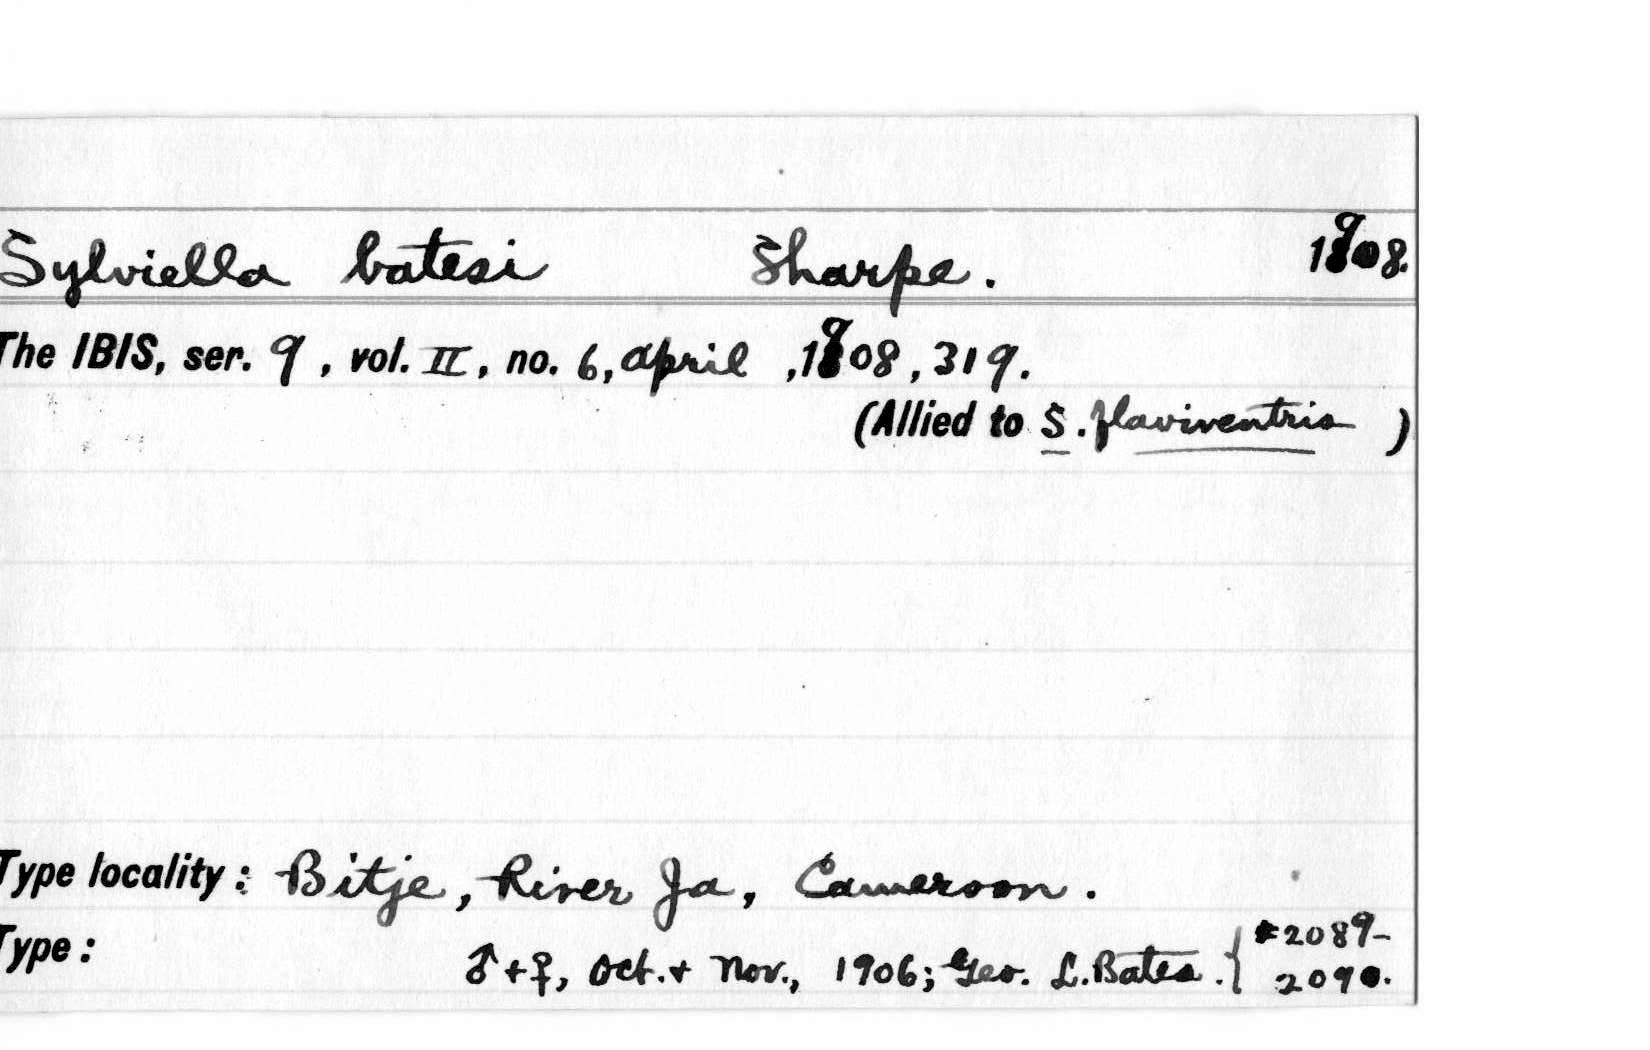 Sylviella batesi Sharpe. 1908.
The IBIS, ser. 9, vol. II, no. 6, april, 1908, 319.
(Allied to S. flaviventris )
Type locality: Bitje, River Ja, Cameroon.
Type: ♂ + ♀, Oct. + Nov., 1906; Geo. L. Bates. { #2089-
2090.